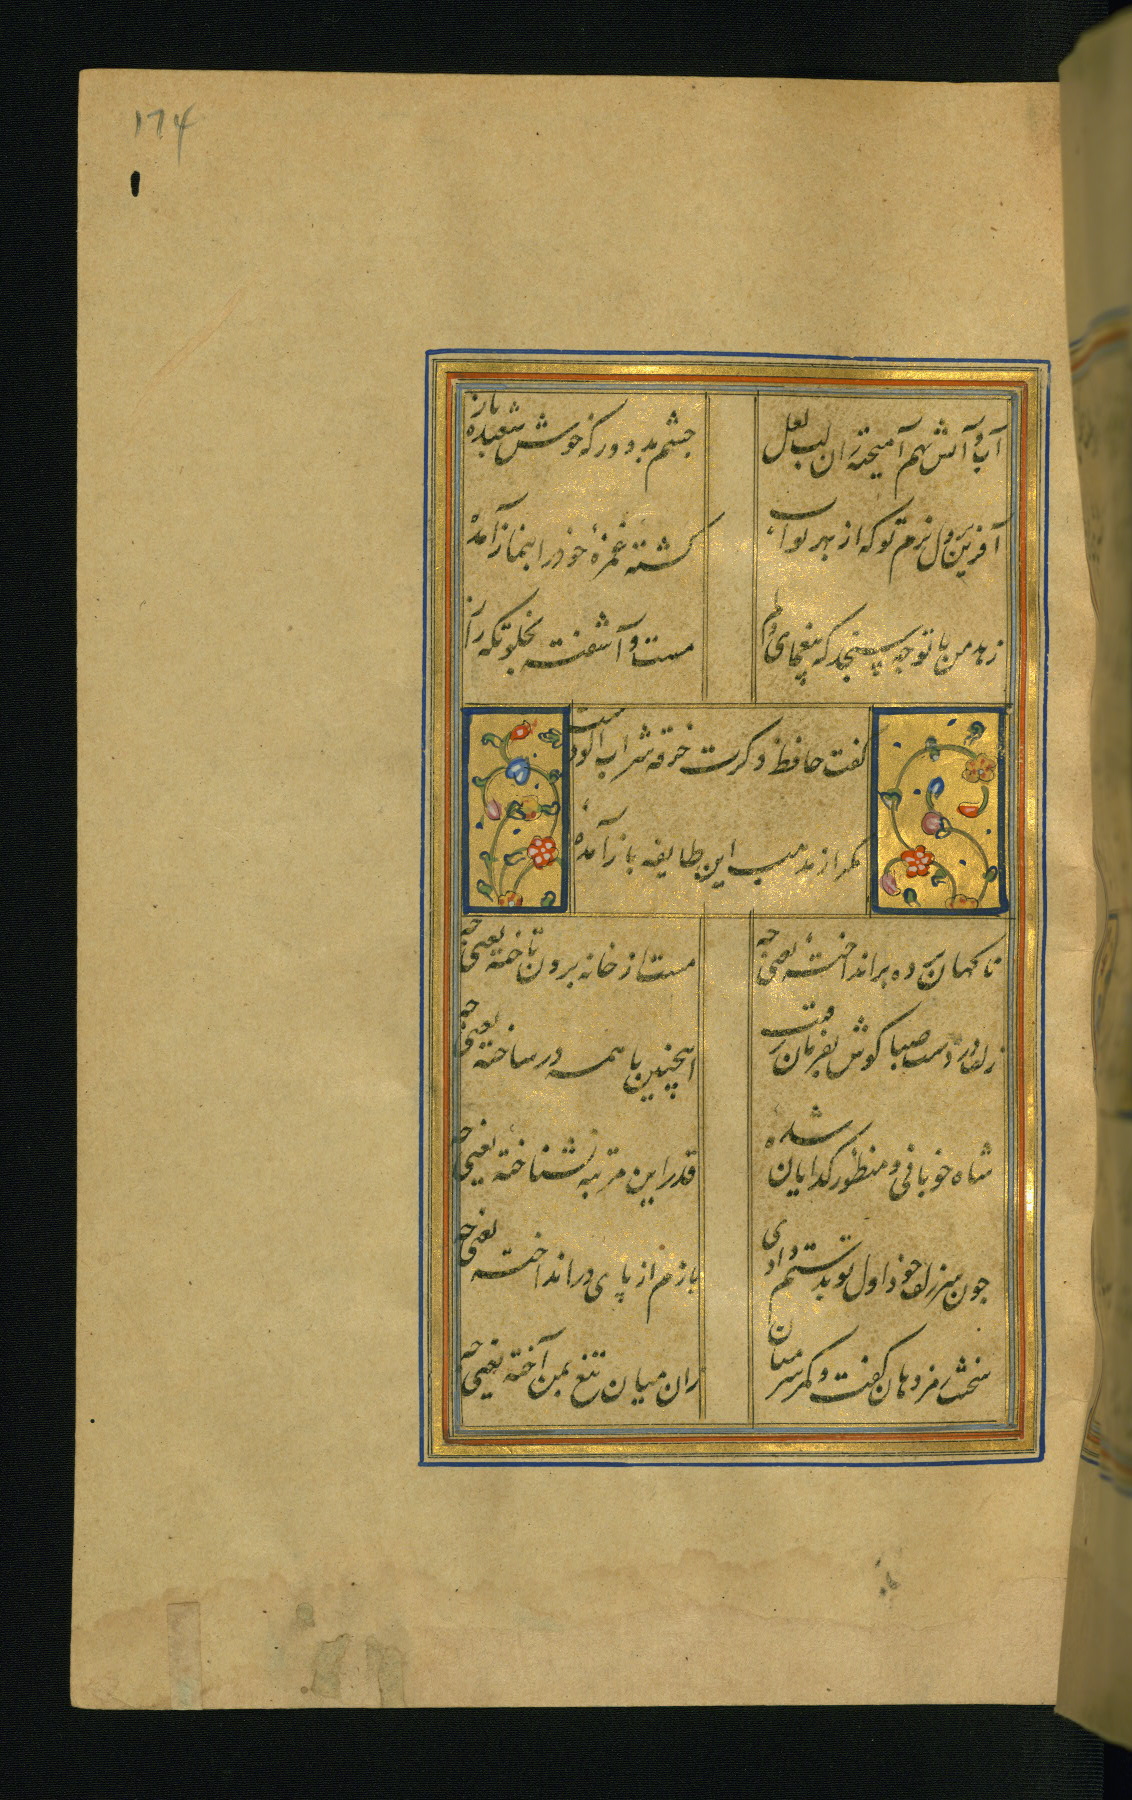 174
آب و آتش بهم آمیخته زان لب لعل
چشم بد دور که خوش شعبده باز
آفرین بر دل نرم تو که از بهر ثواب
کشته غمزهٔ خود را بنماز آمدهٔ
زهد من با تو چه سنجد که بیغمای دلم
مست و آشفته بخلوتگه راز
گفت حافظ دگرت خرقه شراب آلودست
مگر از مذهب این طایفه باز آمدهٔ
ناگهان پرده برانداختهٔ یعنی چه
مست از خانه برون تاختهٔ یعنی چه
زلف در دست صبا گوش بفرمان رقیب
اینچنین با همه در ساختهٔ یعنی چه
شاه خوبانی و منظور گدایان شدهٔ
قدر این مرتبه نشناختهٔ یعنی چه
چون سر زلف خود اول تو بدستم دادی
بازم از پای در انداختهٔ یعنی چه
سخنت رمز دهان گفت و کمر سر میان
زان میان تیغ بمن آختهٔ یعنی چه